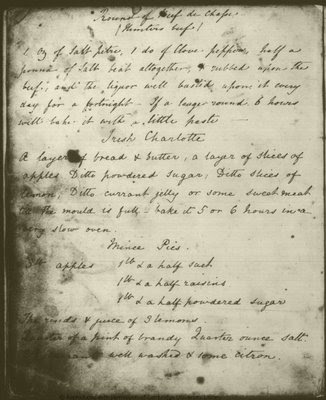 Round of Beef de Chasse
(Hunters beef)
1 Oz of Salt petre, 1 do of Clove pepper, half a
pound of Salt beat altogether, & rubbed upon the
beef, and the liquor well basted upon it every
day for a fortnight - If a large round 6 hours
will bake it with a little paste -
Irish Charlotte
A layer of bread & butter, a layer of slices of
apples Ditto powdered Sugar, Ditto slices of
lemon, Ditto currant jelly or some sweetmeat
till the mould is full bake it 5 or 6 hours in a
very slow oven.
Mince Pies.
apples 1lb & a half suet
1lb & a half raisins
1lb & a half powdered sugar
The rinds & juice of 3 lemons.
Quarter of a pint of brandy Quarter ounce salt.
well washed & some citron.